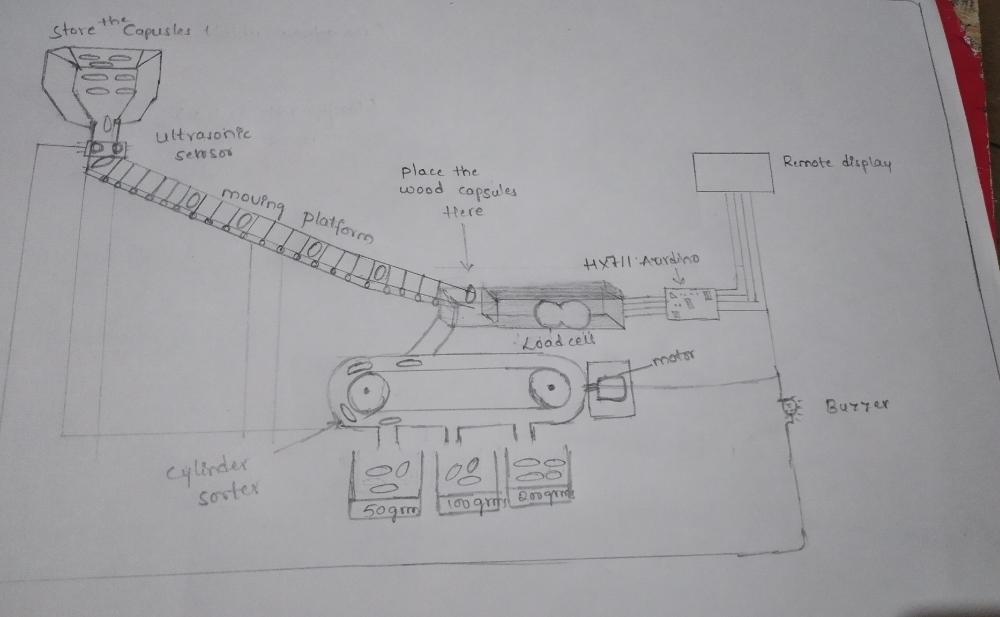 Store the Capusles
ultrasonic
sensor
moving platform
place the
wood capsules
Here
Remote display
HX711 Aurdino
Load cell
motor
Buzzer
cylinder
sorter
50grm
100grm
200grm